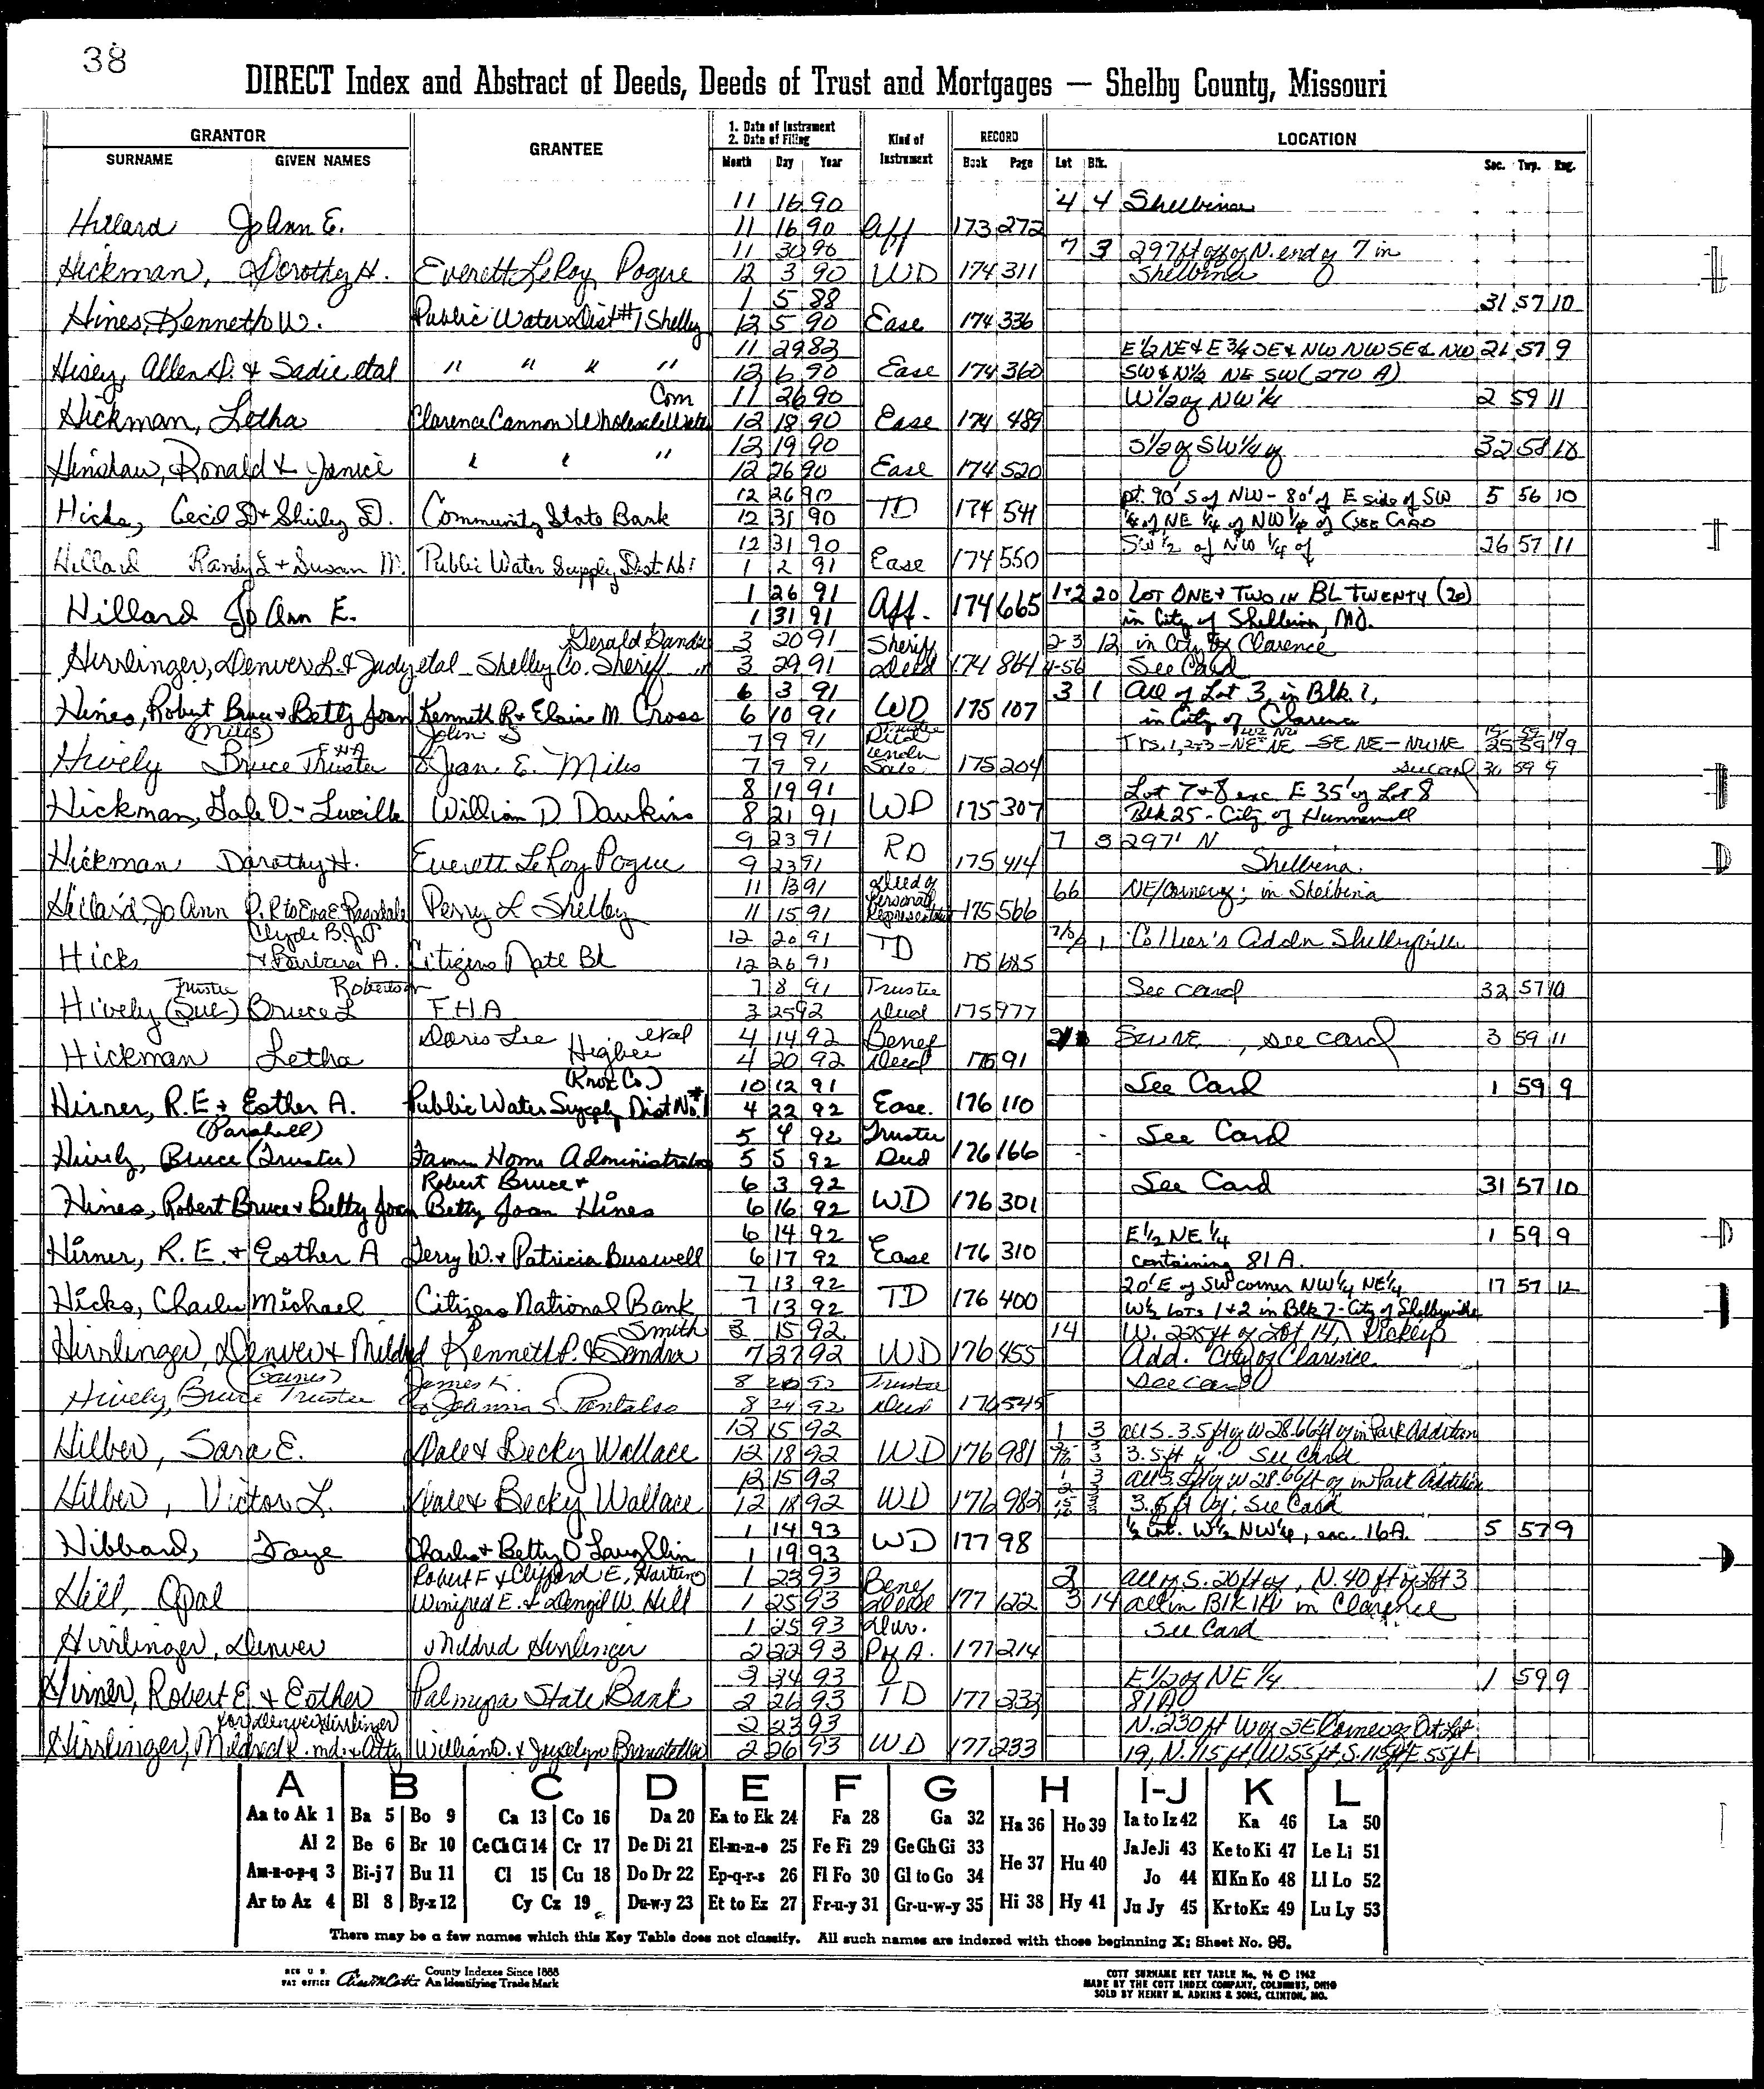 38
DIRECT Index and Abstract of Deeds, Deeds of Trust and Mortgages — Shelby County, Missouri
GRANTOR GRANTEE 1. Date of Instrument 2. Date of Filing Kind of Instrument RECORD LOCATION
SURNAME GIVEN NAMES Month Day Year Book Page Lot Blk. Sec. Twp. Rng.
11 16 90 4 4 Shelbina
Hillard JoAnn E. 11 16 90 Aff 173 272
11 30 90 7 3 297 ft off of N. end of 7 in
Hickman, Dorothy H. Everett LeRoy Pogue 12 3 90 WD 174 311 Shelbina
1 5 88 31 57 10
Hines, Kenneth W. Public Water Dist #1 Shelby 12 5 90 Ease 174 336
11 29 82 E½ NE & E ¾ SE & NW NW SE & NW 21 57 9
Hisey, Allen D. & Sadie etal " " " " 12 6 90 Ease 174 360 SW & N½ NE SW (270 A)
Com 11 26 90 W½ of NW¼ 2 59 11
Hickman, Letha Clarence Cannon Wholesale Water 12 18 90 Ease 174 489
12 19 90 S½ of SW¼ of 32 58 10
Hinshaw, Ronald & Janice " " " 12 26 90 Ease 174 520
12 26 90 pt. 90' S of NW - 80' of E side of SW 5 56 10
Hicks, Cecil D & Shirley D. Community State Bank 12 31 90 TD 174 541 ¼ of NE ¼ of NW ¼ of (SEE CARD
12 31 90 SW ½ of NW ¼ of 26 57 11
Hillard Randy L + Susan M. Public Water Supply Dist No 1 1 2 91 Ease 174 550
1 26 91 1+2 20 LOT ONE + TWO IN BL TWENTY (20)
Hillard Jo Ann E. 1 31 91 Aff. 174 665 in City of Shelbina, MO.
Gerald 3 20 91 Sheriff 2-3 12 in City of Clarence
Hirrlinger, Denver L. & Judy etal Shelby Co. Sheriff 3 29 91 Deed 174 864 4-56 See Card
6 3 91 3 1 All of Lot 3, in Blk. 1,
Hines, Robert Bruce + Betty Joan Kenneth R + Elaine M. Cross 6 10 91 WD 175 107 in City of Clarence
(Miles) FHA John S 7 9 91 Trs. 1, 2 + 3 - NE NE - SE NE - NW NE 25 59 9
Hively Bruce Trustee & Jean E. Miles 7 9 91 Sale 175 204 see card 36 59 9
8 19 91 Lot 7 + 8 exc. E 35' of Lot 8
Hickman, Gale D. + Lucille William D. Dawkins 8 21 91 WD 175 307 Blk 25 - City of Hunnewell
9 23 91 7 3 297' N
Hickman Dorothy H. Everett LeRoy Pogue 9 23 91 RD 175 414 Shelbina.
11 13 91 Deed of Personal 66 NE/Corner of; in Shelbina
Hillard, Jo Ann P.R to Eva E. Ragsdale Perry L Shelby 11 15 91 Representative 175 566
Clyde B. Jr 12 20 91 1 Collier's Addn Shelbyville
Hicks & Barbara A. Citizens Natl Bk 12 26 91 TD 175 685
Trustee Robertson 7 8 91 Trustee See card 32 57 10
Hively (Sue) Bruce L F.H.A 3 25 92 Deed 175 977
Doris Lee etal 4 14 92 Benef , see card 3 59 11
Hickman Letha Higbee 4 20 92 Deed 176 91
(Knox Co.) 10 12 91 See Card 1 59 9
Hirner, R.E. + Esther A. Public Water Supply Dist No. #1 4 22 92 Ease. 176 110
(Parshall) 5 4 92 Trustee See Card
Hively, Bruce (Trustee) Farm Home Administration 5 5 92 Deed 176 166
Robert Bruce + 6 3 92 See Card 31 57 10
Hines, Robert Bruce + Betty Joan Betty Joan Hines 6 16 92 W.D 176 301
6 14 92 E½ NE ¼ 1 59 9
Hirner, R. E. + Esther A Jerry W. + Patricia Buswell 6 17 92 Ease 176 310 containing 81 A.
7 13 92 20' E of SW corner NW¼ NE¼ 17 57 12
Hicks, Charles Michael Citizens National Bank 7 13 92 TD 176 400 W½ Lots 1 + 2 in Blk 7 - City of Shelbyville
Smith 3 15 92 14 W. 225 ft of Lot 14, Dickeys
Hirrlinger, Denver + Mildred Kenneth P. & Sandra 7 27 92 WD 176 455 Add. City of Clarence
(Gaines) James K. 8 20 92 Trustee See card
Hively, Bruce Trustee & Johnna S. 8 24 92 Deed 176 545
12 15 92 1 3 all S. 3.5 ft of W 28.66 ft of in Park Addition
Hilber, Sara E. Dale + Becky Wallace 12 18 92 W.D 176 981 3.5 ft of See Card
12 15 92 1 3 all 3.5 ft of W 28.66 ft of in Park Addition
Hilber, Victor L. Dale + Becky Wallace 12 18 92 WD 176 982 3.5 ft of; See Card
1 14 93 ½ int. W½ NW¼, exc. 16A. 5 57 9
Hibbard, Faye Charles + Betty O'Laughlin 1 19 93 WD 177 98
Robert F + Clifford E, 1 23 93 Benef 2 all of S. 20 ft of, N. 40 ft of Lot 3
Hill, Opal Winifred E. + Denzil W. Hill 1 25 93 Deed 177 122 3 14 all in Blk 14 in Clarence
1 25 93 Dur. See Card
Hirrlinger, Denver Mildred Hirrlinger 2 22 93 P of A. 177 214
2 24 93 E½ of NE ¼ 1 59 9
Hirner, Robert E + Esther Palmyra State Bank 2 26 93 TD 177 232 81A
for Denver Hirrlinger 2 23 93 N. 230 ft W of SE Corner of Out Lot
Hirrlinger, Mildred R. ind. + Atty William D. + Jycelyn Branstetter 2 26 93 WD 177 233 19, N. 115 ft, W 55 ft, S. 115 ft, E 55 ft
A B C D E F G H I-J K L
Aa to Ak 1 Ba 5 Bo 9 Ca 13 Co 16 Da 20 Ea to Ek 24 Fa 28 Ga 32 Ha 36 Ho 39 Ia to Iz 42 Ka 46 La 50
Al 2 Be 6 Br 10 Ce Ch Ci 14 Cr 17 De Di 21 El-m-n-o 25 Fe Fi 29 Ge Gh Gi 33 He 37 Hu 40 Ja Je Ji 43 Ke to Ki 47 Le Li 51
Am-n-o-p-q 3 Bi-j 7 Bu 11 Cl 15 Cu 18 Do Dr 22 Ep-q-r-s 26 Fl Fo 30 Gl to Go 34 Jo 44 Kl Kn Ko 48 Ll Lo 52
Ar to Az 4 Bl 8 By-z 12 Cy Cz 19 Du-w-y 23 Et to Ez 27 Fr-u-y 31 Gr-u-w-y 35 Hi 38 Hy 41 Ju Jy 45 Kr to Kz 49 Lu Ly 53
There may be a few names which this Key Table does not classify. All such names are indexed with those beginning X; Sheet No. 95.
REG U S PAT OFFICE County Indexes Since 1888 An Identifying Trade Mark
COTT SURNAME KEY TABLE No. 96 © 1962
MADE BY THE COTT INDEX COMPANY, COLUMBUS, OHIO
SOLD BY HENRY M. ADKINS & SONS, CLINTON, MO.